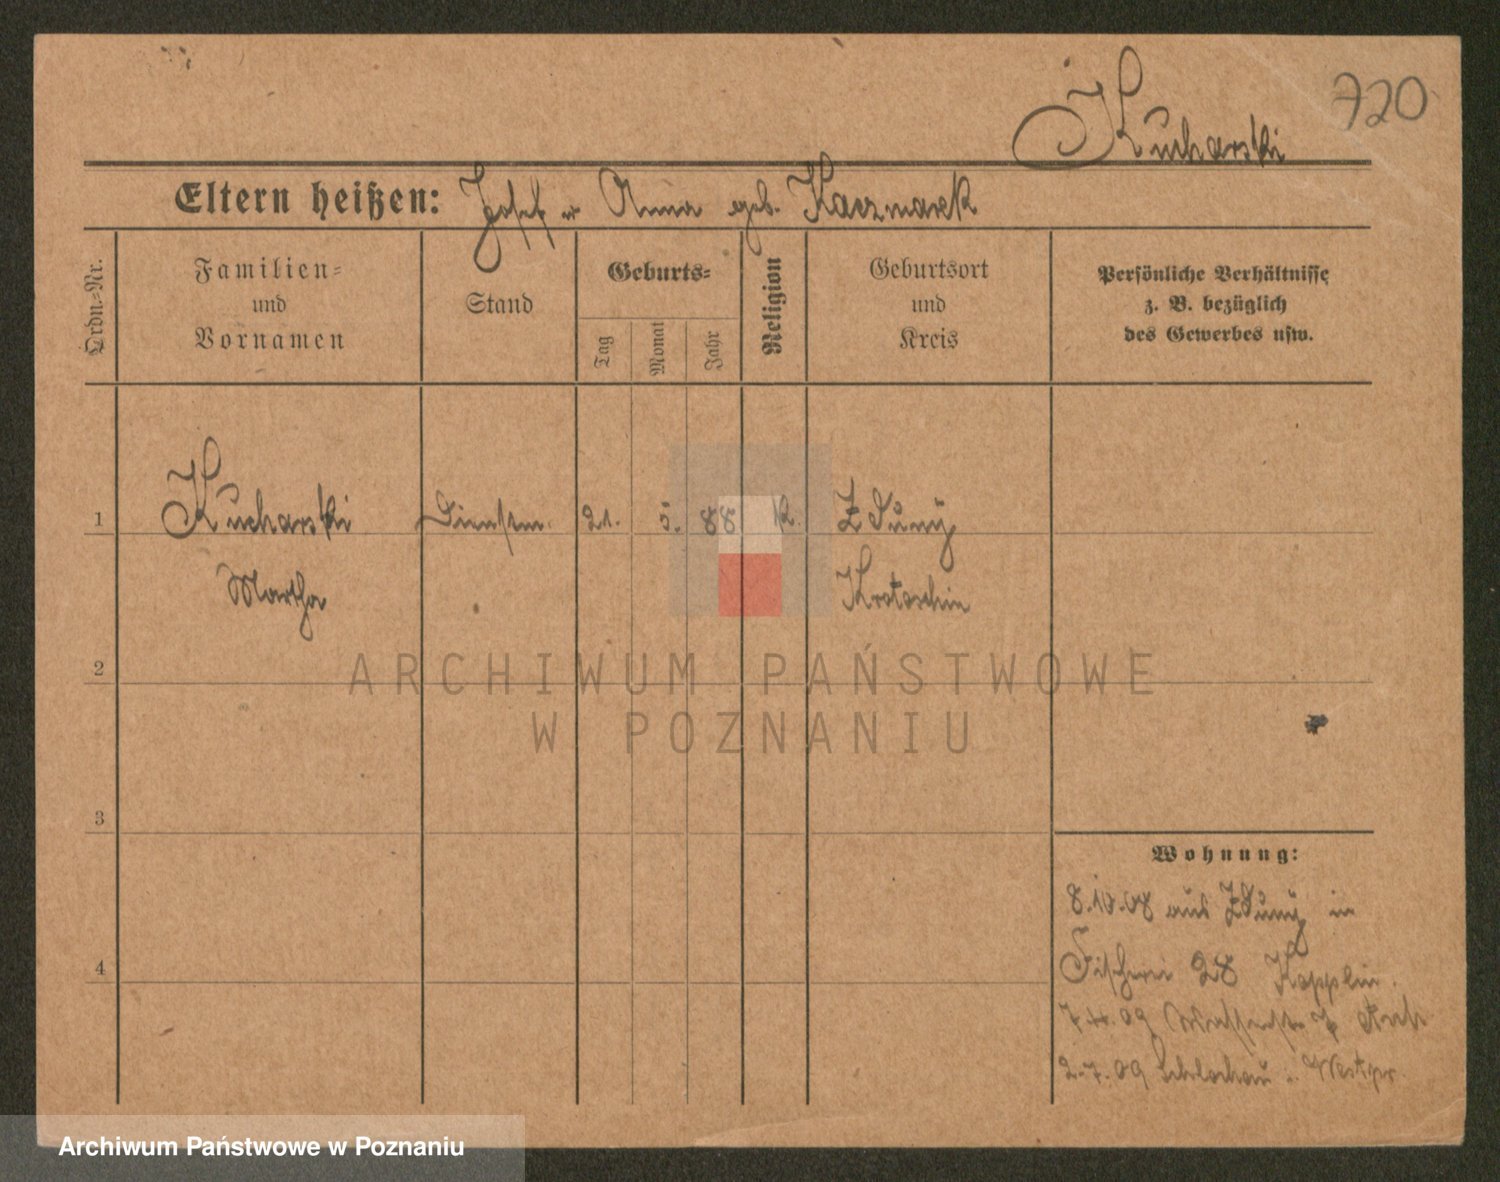 720
Kucharski
Eltern heißen: Josef u Anna geb. Kaczmarek
Ordn=Nr.
Familien=
und
Vornamen
Stand
Geburts=
Tag
Monat
Jahr
Religion
Geburtsort
und
Kreis
Persönliche Verhältnisse
z. B. bezüglich
des Gewerbes usw.
1 Kucharski Dienstm. 21. 5. 88 k. Zduny
Martha Krotoschin
2
3
4
Wohnung:
8.10.08 aus Zduny in
Fischerei 28 Kopplin.
7.4.09
2.7.09 Schlochau i. Westpr.
ARCHIWUM PAŃSTWOWE
W POZNANIU
Archiwum Państwowe w Poznaniu